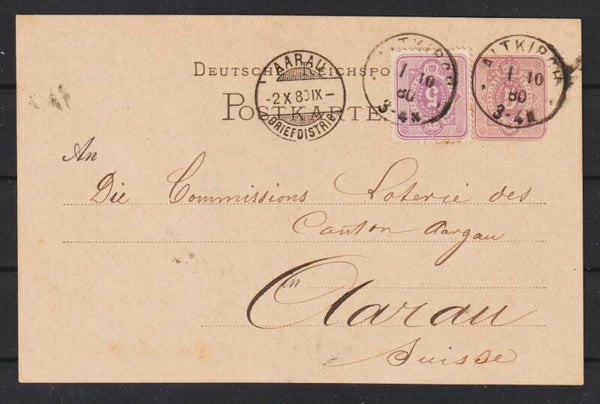 DEUTSCHE REICHSPOST
POSTKARTE
AARAU
-2 X 80 IX-
BRIEFDISTR.
ALTKIRCH
1 10
80
3-4 N
5
ALTKIRCH
1 10
80
3-4 N
5
An
Die Commissions Loterie des
Canton Aargau
in
Aarau
Suisse